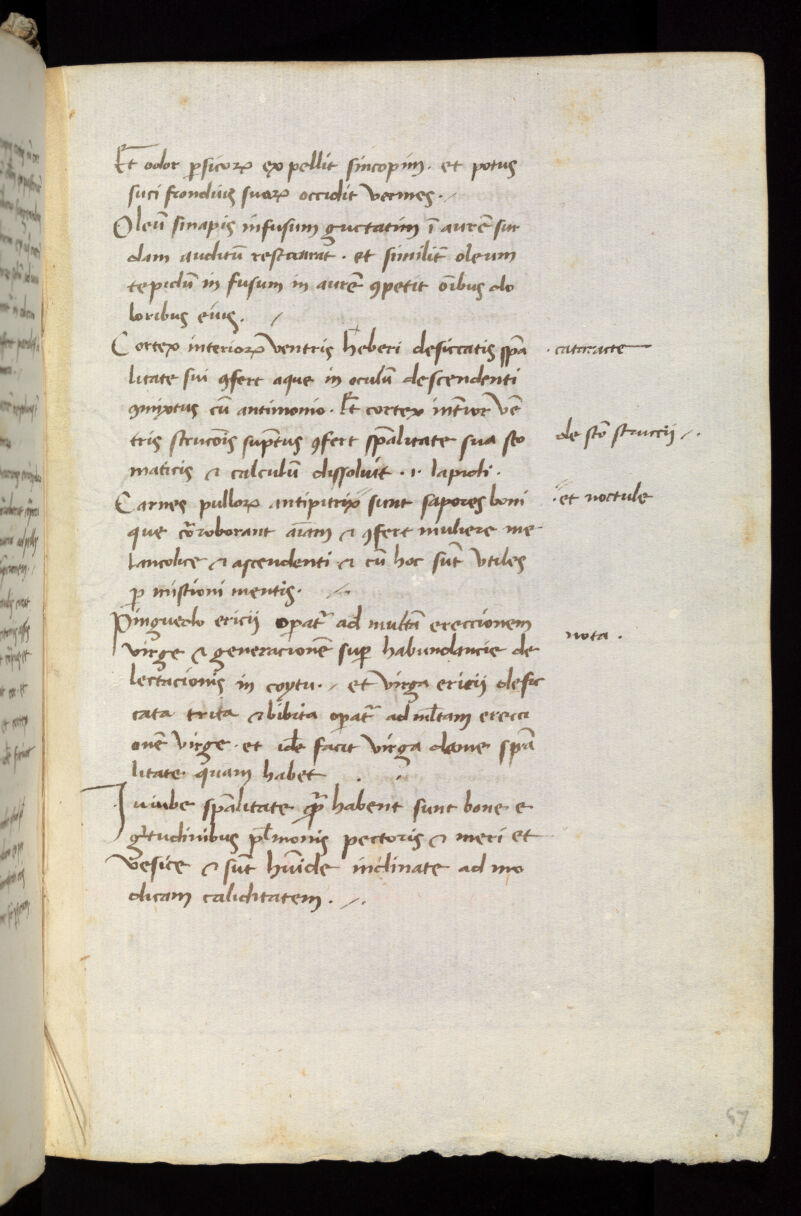 Et odor ꝑsicorꝝ expellit sincopim. et potus
suci frondiuʒ suorꝝ occidit vermes.
Oleũ sinapis infusum guctatim ĩ aurẽ sur
dam auditũ restaurat. et similit̃ oleum
tepidũ in fusum in aurẽ ꝯpetit oĩbus do
loribus eius.
Cortex interiorꝝ ventris heberi desiccatis spã
litate sui ꝯfert aque in oculũ descendenti
ꝯmixtus cũ antimonio. Et cortex int̃ior vẽ
tris strucõis sup̃tus ꝯfert spãlitate sua sto
maticis ⁊ calculũ dissoluit .i. lapidi.
Carnes pulloꝝ antipitrix sunt sapores boni
que cõroborant aĩam ⁊ ꝯfert muliere me
lancolice ⁊ ascendenti ⁊ cũ hoc sũt vtiles
ꝑmistioni mentis.
Pinguedo ericii oꝑat᷑ ad multã ereccionem
virge ⁊ generacionẽ suꝑ habundancie de
lectacionis in coytu. et virga ericii desic
cata trita ⁊ bibita oꝑat᷑ ad ml̃tam erecci
onẽ virge. et idẽ facit virga leone spã
litate quam habet
Juiube spãlitate quã habent sunt bone e
gr̃tudinibus pl̃monis pectoris ⁊ meri et
vesice ⁊ sũt hũide inclinate ad mo
dicam caliditatem.
. cataracte
de sto struccii
. et noctule
nota .
57